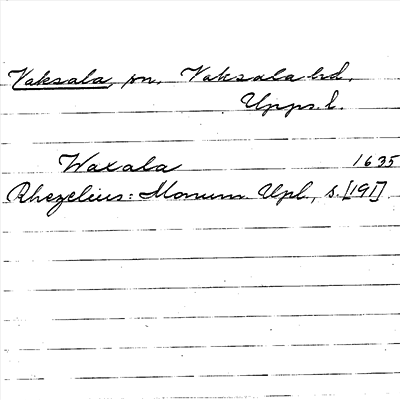 Vaksala, sn, Vaksala hd,
Upps. l.
Waxala 1635
Rhezelius: Monum. Upl, s. [191]